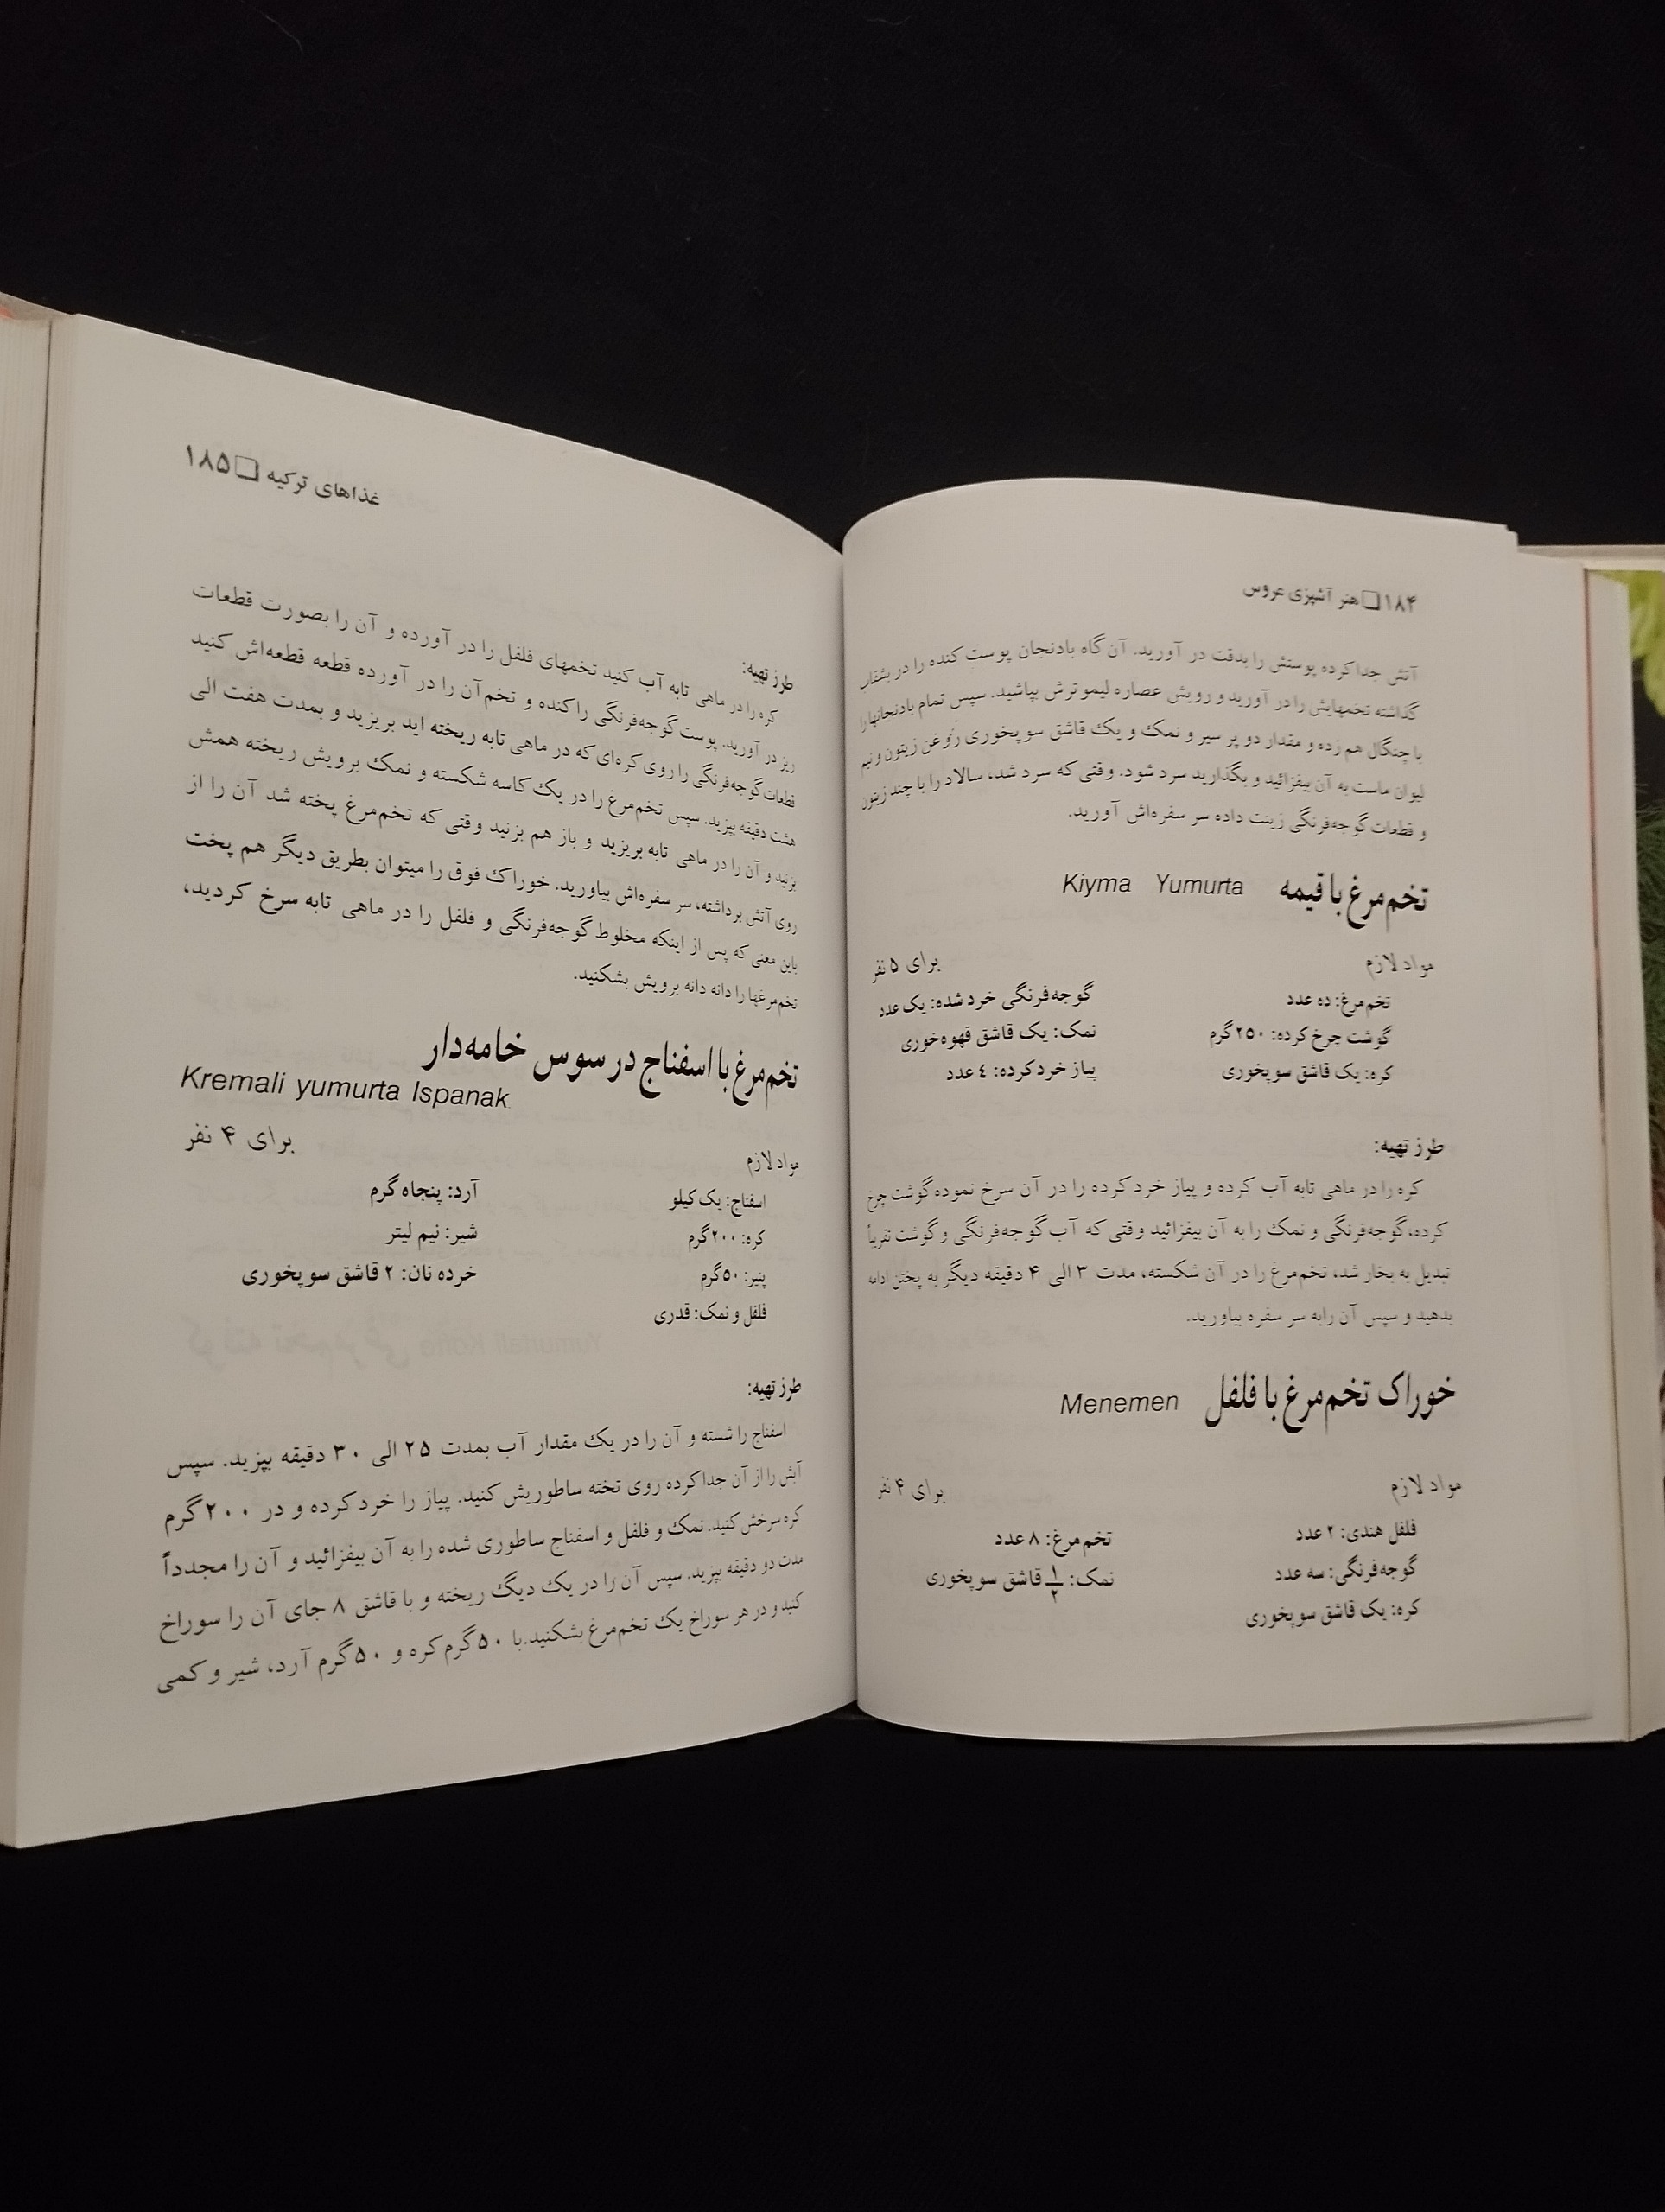 ۱۸۴❑هنر آشپزی عروس
آتش جدا کرده پوستش را بدقت در آورید. آن گاه بادنجان پوست کنده را در بشقاب
گذاشته تخمهایش را در آورید و رویش عصاره لیمو ترش بپاشید. سپس تمام بادنجانها را
با چنگال هم زده و مقدار دو پر سیر و نمک و یک قاشق سوپخوری روغن زیتون و نیم
لیوان ماست به آن بیفزائید و بگذارید سرد شود. وقتی که سرد شد، سالاد را با چند زیتون
و قطعات گوجه‌فرنگی زینت داده سر سفره‌اش آورید.
تخم‌مرغ با قیمه Kiyma Yumurta
مواد لازم برای ۵ نفر
تخم‌مرغ: ده عدد گوجه‌فرنگی خرد شده: یک عدد
گوشت چرخ کرده: ۲۵۰ گرم نمک: یک قاشق قهوه‌خوری
کره: یک قاشق سوپخوری پیاز خرد کرده: ٤ عدد
طرز تهیه:
کره را در ماهی تابه آب کرده و پیاز خرد کرده را در آن سرخ نموده گوشت چرخ
کرده، گوجه‌فرنگی و نمک را به آن بیفزائید وقتی که آب گوجه‌فرنگی و گوشت تقریباً
تبدیل به بخار شد، تخم‌مرغ را در آن شکسته، مدت ۳ الی ۴ دقیقه دیگر به پختن ادامه
بدهید و سپس آن رابه سر سفره بیاورید.
خوراک تخم‌مرغ با فلفل Menemen
مواد لازم برای ۴ نفر
فلفل هندی: ۲ عدد تخم‌مرغ: ۸ عدد
گوجه‌فرنگی: سه عدد نمک: ۱/۲ قاشق سوپخوری
کره: یک قاشق سوپخوری
غذاهای ترکیه ❑۱۸۵
طرز تهیه:
کره را در ماهی تابه آب کنید تخمهای فلفل را در آورده و آن را بصورت قطعات
ریز در آورید. پوست گوجه‌فرنگی را کنده و تخم آن را در آورده قطعه قطعه‌اش کنید
قطعات گوجه‌فرنگی را روی کره‌ای که در ماهی تابه ریخته اید بریزید و بمدت هفت الی
هشت دقیقه بپزید. سپس تخم‌مرغ را در یک کاسه شکسته و نمک برویش ریخته همش
بزنید و آن را در ماهی تابه بریزید و باز هم بزنید وقتی که تخم‌مرغ پخته شد آن را از
روی آتش برداشته، سر سفره‌اش بیاورید. خوراک فوق را میتوان بطریق دیگر هم پخت
باین معنی که پس از اینکه مخلوط گوجه‌فرنگی و فلفل را در ماهی تابه سرخ کردید،
تخم‌مرغها را دانه دانه برویش بشکنید.
تخم‌مرغ با اسفناج در سوس خامه‌دار
Kremali yumurta Ispanak
مواد لازم برای ۴ نفر
اسفناج: یک کیلو آرد: پنجاه گرم
کره: ۲۰۰ گرم شیر: نیم لیتر
پنیر: ۵۰ گرم خرده نان: ۲ قاشق سوپخوری
فلفل و نمک: قدری
طرز تهیه:
اسفناج را شسته و آن را در یک مقدار آب بمدت ۲۵ الی ۳۰ دقیقه بپزید. سپس
آبش را از آن جدا کرده روی تخته ساطوریش کنید. پیاز را خرد کرده و در ۲۰۰ گرم
کره سرخش کنید. نمک و فلفل و اسفناج ساطوری شده را به آن بیفزائید و آن را مجدداً
مدت دو دقیقه بپزید. سپس آن را در یک دیگ ریخته و با قاشق ۸ جای آن را سوراخ
کنید و در هر سوراخ یک تخم‌مرغ بشکنید. با ۵۰ گرم کره و ۵۰ گرم آرد، شیر و کمی